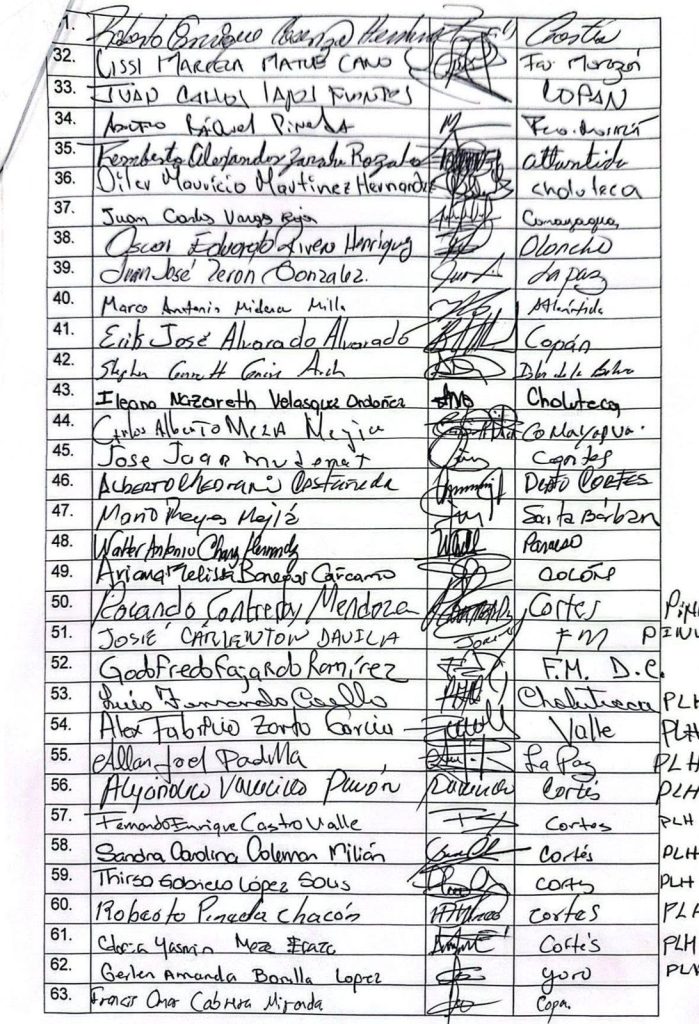 31. Roberto Enrique Cosenza Cortés
32. Cissi Marcela Matue Cano Fco Morazón
33. JUAN CARLOS FUENTES COPAN
34. Raquel Pineda Fco. Morazán
35. Remberto Alexander Zavala Rozales atlantida
36. Diler Mauricio Martinez Hernandez choluteca
37. Juan Carlos Vargas Comayagua
38. Oscar Edugardo Rivera Henriquez Olancho
39. Juan José Zeron Gonzalez. La paz
40. Marco Antonio Midence Milla Atlántida
41. Erik José Alvarado Alvarado Copán
42. Stephen Islas de la Bahia
43. Ileana Nazareth Velasquez Ordoñez Choluteca
44. Carlos Alberto MEZA Mejia COMAYAGUA.
45. Jose Juan Cortes
46. ALBERTO CHEDRANI CASTAÑEDA Depto CORTES
47. Mario Reyes Mejía Santa Bárbara
48. Walter Antonio Chavez Hernandez Paraiso
49. Ariana Melissa Banegas Cárcamo COLÓN
50. Rolando Contreras Mendoza Cortes PINU
51. JOSUÉ CARVENTON DAVILA FM PINU
52. Godofredo Fajardo Ramírez F.M. D.C.
53. Luis Fernando Coello Choluteca PLH
54. Alex Fabricio Zarto Garcia Valle PLH
55. Allan Joel Padilla La Paz PLH
56. Pavón Cortés PLH
57. Fernando Enrique Castro Valle Cortes PLH
58. Sandra Carolina Coleman Milián Cortés PLH
59. Thirsa Gabriela López Solis Cortes PLH
60. Roberto Pineda chacón cortes PLH
61. Yasmin Meza Cortés PLH
62. Gerlen Amanda Bonilla Lopez yoro PLH
63. Francis Omar Cabrera Miranda Copa.